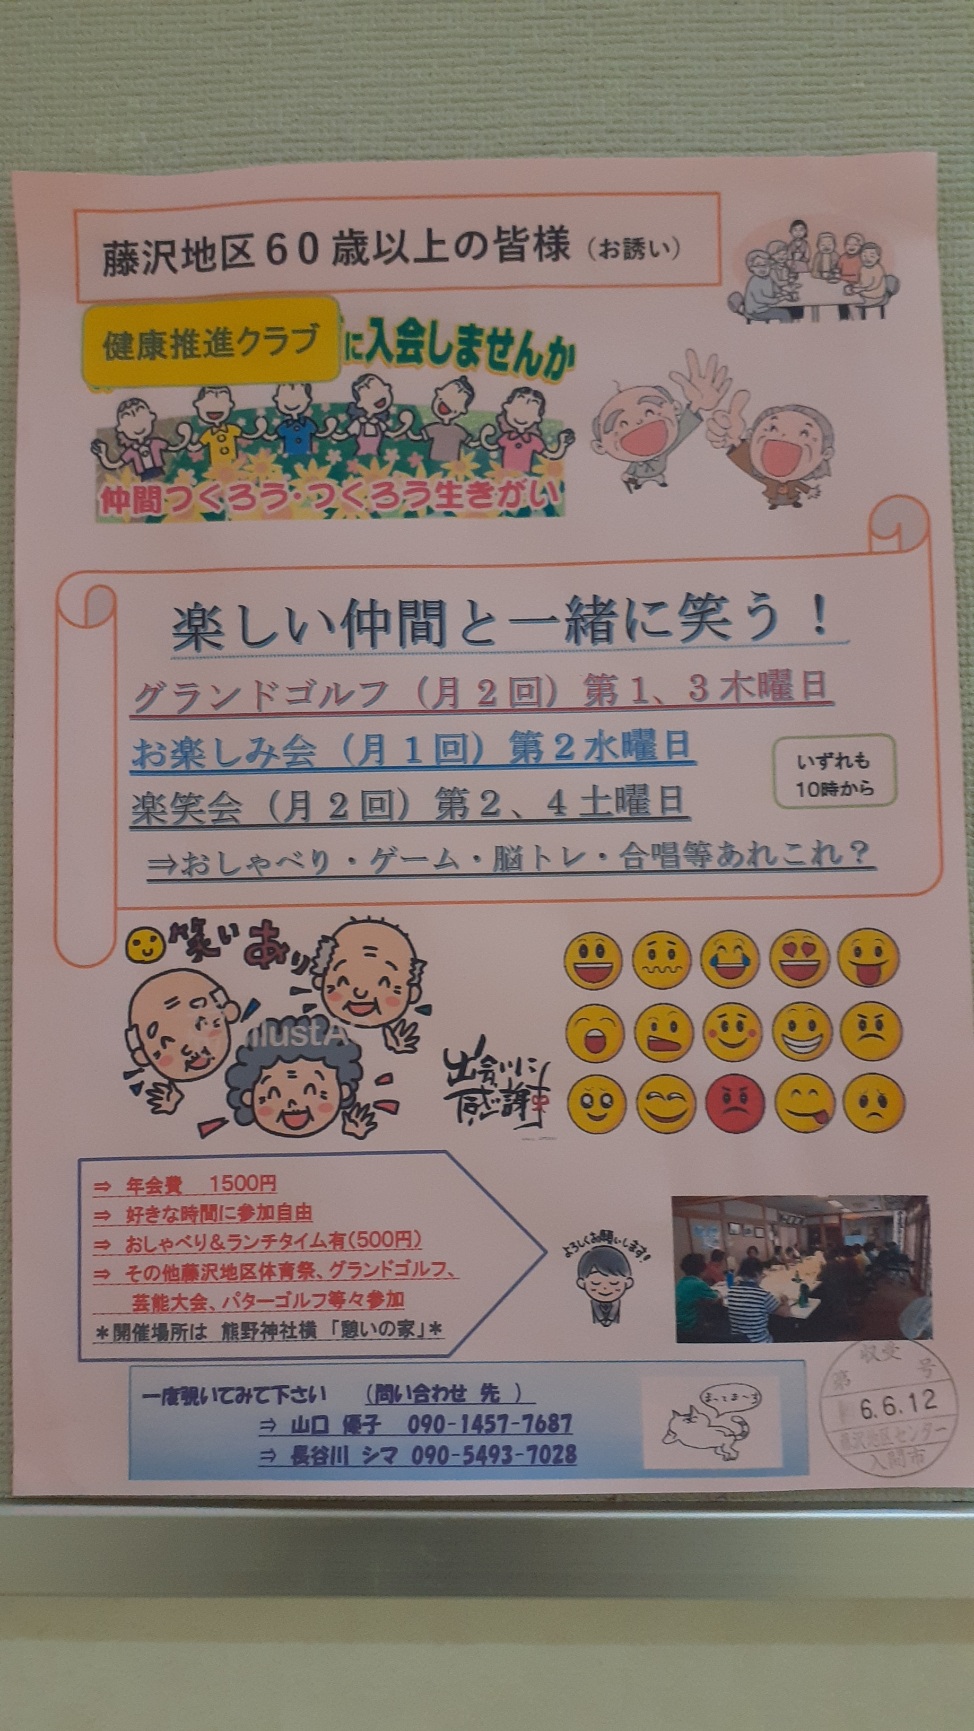 藤沢地区60歳以上の皆様(お誘い)
健康推進クラブ
に入会しませんか
仲間つくろう・つくろう生きがい
楽しい仲間と一緒に笑う!
グランドゴルフ(月2回)第1、3木曜日
お楽しみ会(月1回)第2水曜日
楽笑会(月2回)第2、4土曜日
いずれも
10時から
⇒おしゃべり・ゲーム・脳トレ・合唱等あれこれ?
笑いあり
出会いに
感謝
⇒ 年会費 1500円
⇒ 好きな時間に参加自由
⇒ おしゃべり&ランチタイム有(500円)
⇒ その他藤沢地区体育祭、グランドゴルフ、
芸能大会、パターゴルフ等々参加
*開催場所は 熊野神社横 「憩いの家」*
よろしくお願いします!
一度覗いてみて下さい (問い合わせ 先 )
⇒ 山口 優子 090-1457-7687
⇒ 長谷川 シマ 090-5493-7028
まってま~す
収受
第 号
6.6.12
藤沢地区センター
入間市